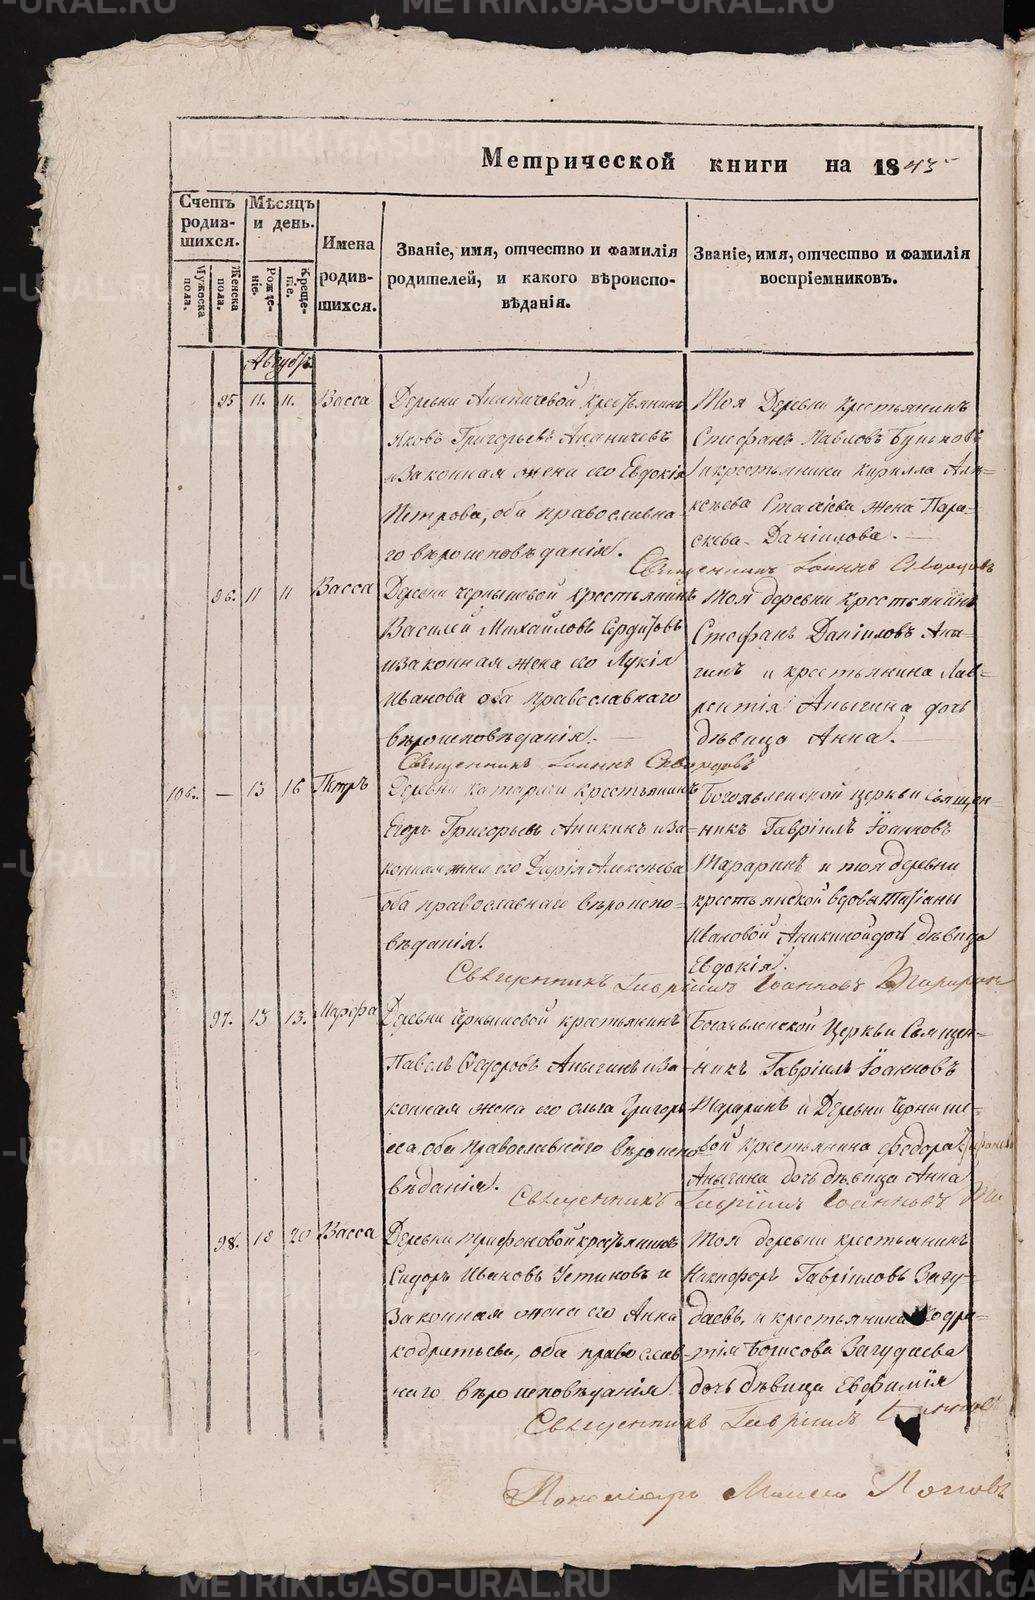 METRIKI.GASO-URAL.RU
Метрической книги на 1845
Счетъ родив-шихся.
Мужеска пола.
Женска пола.
Мѣсяцъ и день.
Рожде-нія.
Креще-нія.
Имена родив-шихся.
Званіе, имя, отчество и фамилія родителей, и какого вѣроиспо-вѣданія.
Званіе, имя, отчество и фамилія воспріемниковъ.
Августъ
95 11. 11. Васса
Деревни Ананичевой крестьянинъ
Яковъ Григорьевъ Ананичевъ
и законная жена его Евдокія
Петрова, оба православна-
го вѣроисповѣданія.
Тоя Деревни крестьянинъ
Стефанъ Павловъ
и крестьянина Кирилла Але-
ксѣева жена Пара-
скева Даніилова.
Священникъ Іоаннъ
96. 11 11 Васса
Деревни Чернышевой крестьянинъ
Василей Михайловъ Сердитовъ
и законная жена его Лукія
Иванова оба православнаго
вѣроисповѣданія.
Тоя деревни крестьянинъ
Стефанъ Даніиловъ Аны-
гинъ и крестьянина Лав-
рентія Аныгина дочь
дѣвица Анна.
Священникъ Іоаннъ
106. — 13 16 Петръ
Деревни крестьянинъ
Егоръ Григорьевъ Аникинъ и за-
конная жена его Дарія Алексѣева
оба православнаго вѣроиспо-
вѣданія.
Богоявленской церкви священ-
никъ Гавріилъ Іоанновъ
Тараринъ и тоя деревни
крестьянской вдовы Татіаны
Ивановой Аникиной дочь дѣвица
Евдокія.
Священникъ Гавріилъ Іоанновъ Тараринъ
97. 13 13. Марѳа
Деревни Чернышовой крестьянинъ
Павелъ Ѳедоровъ Аныгинъ и за-
конная жена его Ольга Григорь-
ева, оба православнаго вѣроиспо-
вѣданія.
Богоявленской Церкви Священ-
никъ Гавріилъ Іоанновъ
Тараринъ и Деревни Черныше-
вой крестьянина Федора
Аныгина дочь дѣвица Анна
Священникъ Гавріилъ Іоанновъ
98. 18 20 Васса
Деревни Трифоновой крестьянинъ
Сидоръ Ивановъ Устиновъ и
законная жена его Анна
Кодратьева, оба православ-
наго вѣроисповѣданія.
Тоя деревни крестьянинъ
Никифоръ Гавріиловъ Загу-
даевъ, и крестьянина Кодра-
тія Борисова Загудаева
дочь дѣвица Евфимія
Священникъ Гавріилъ
Пономарь Поповъ